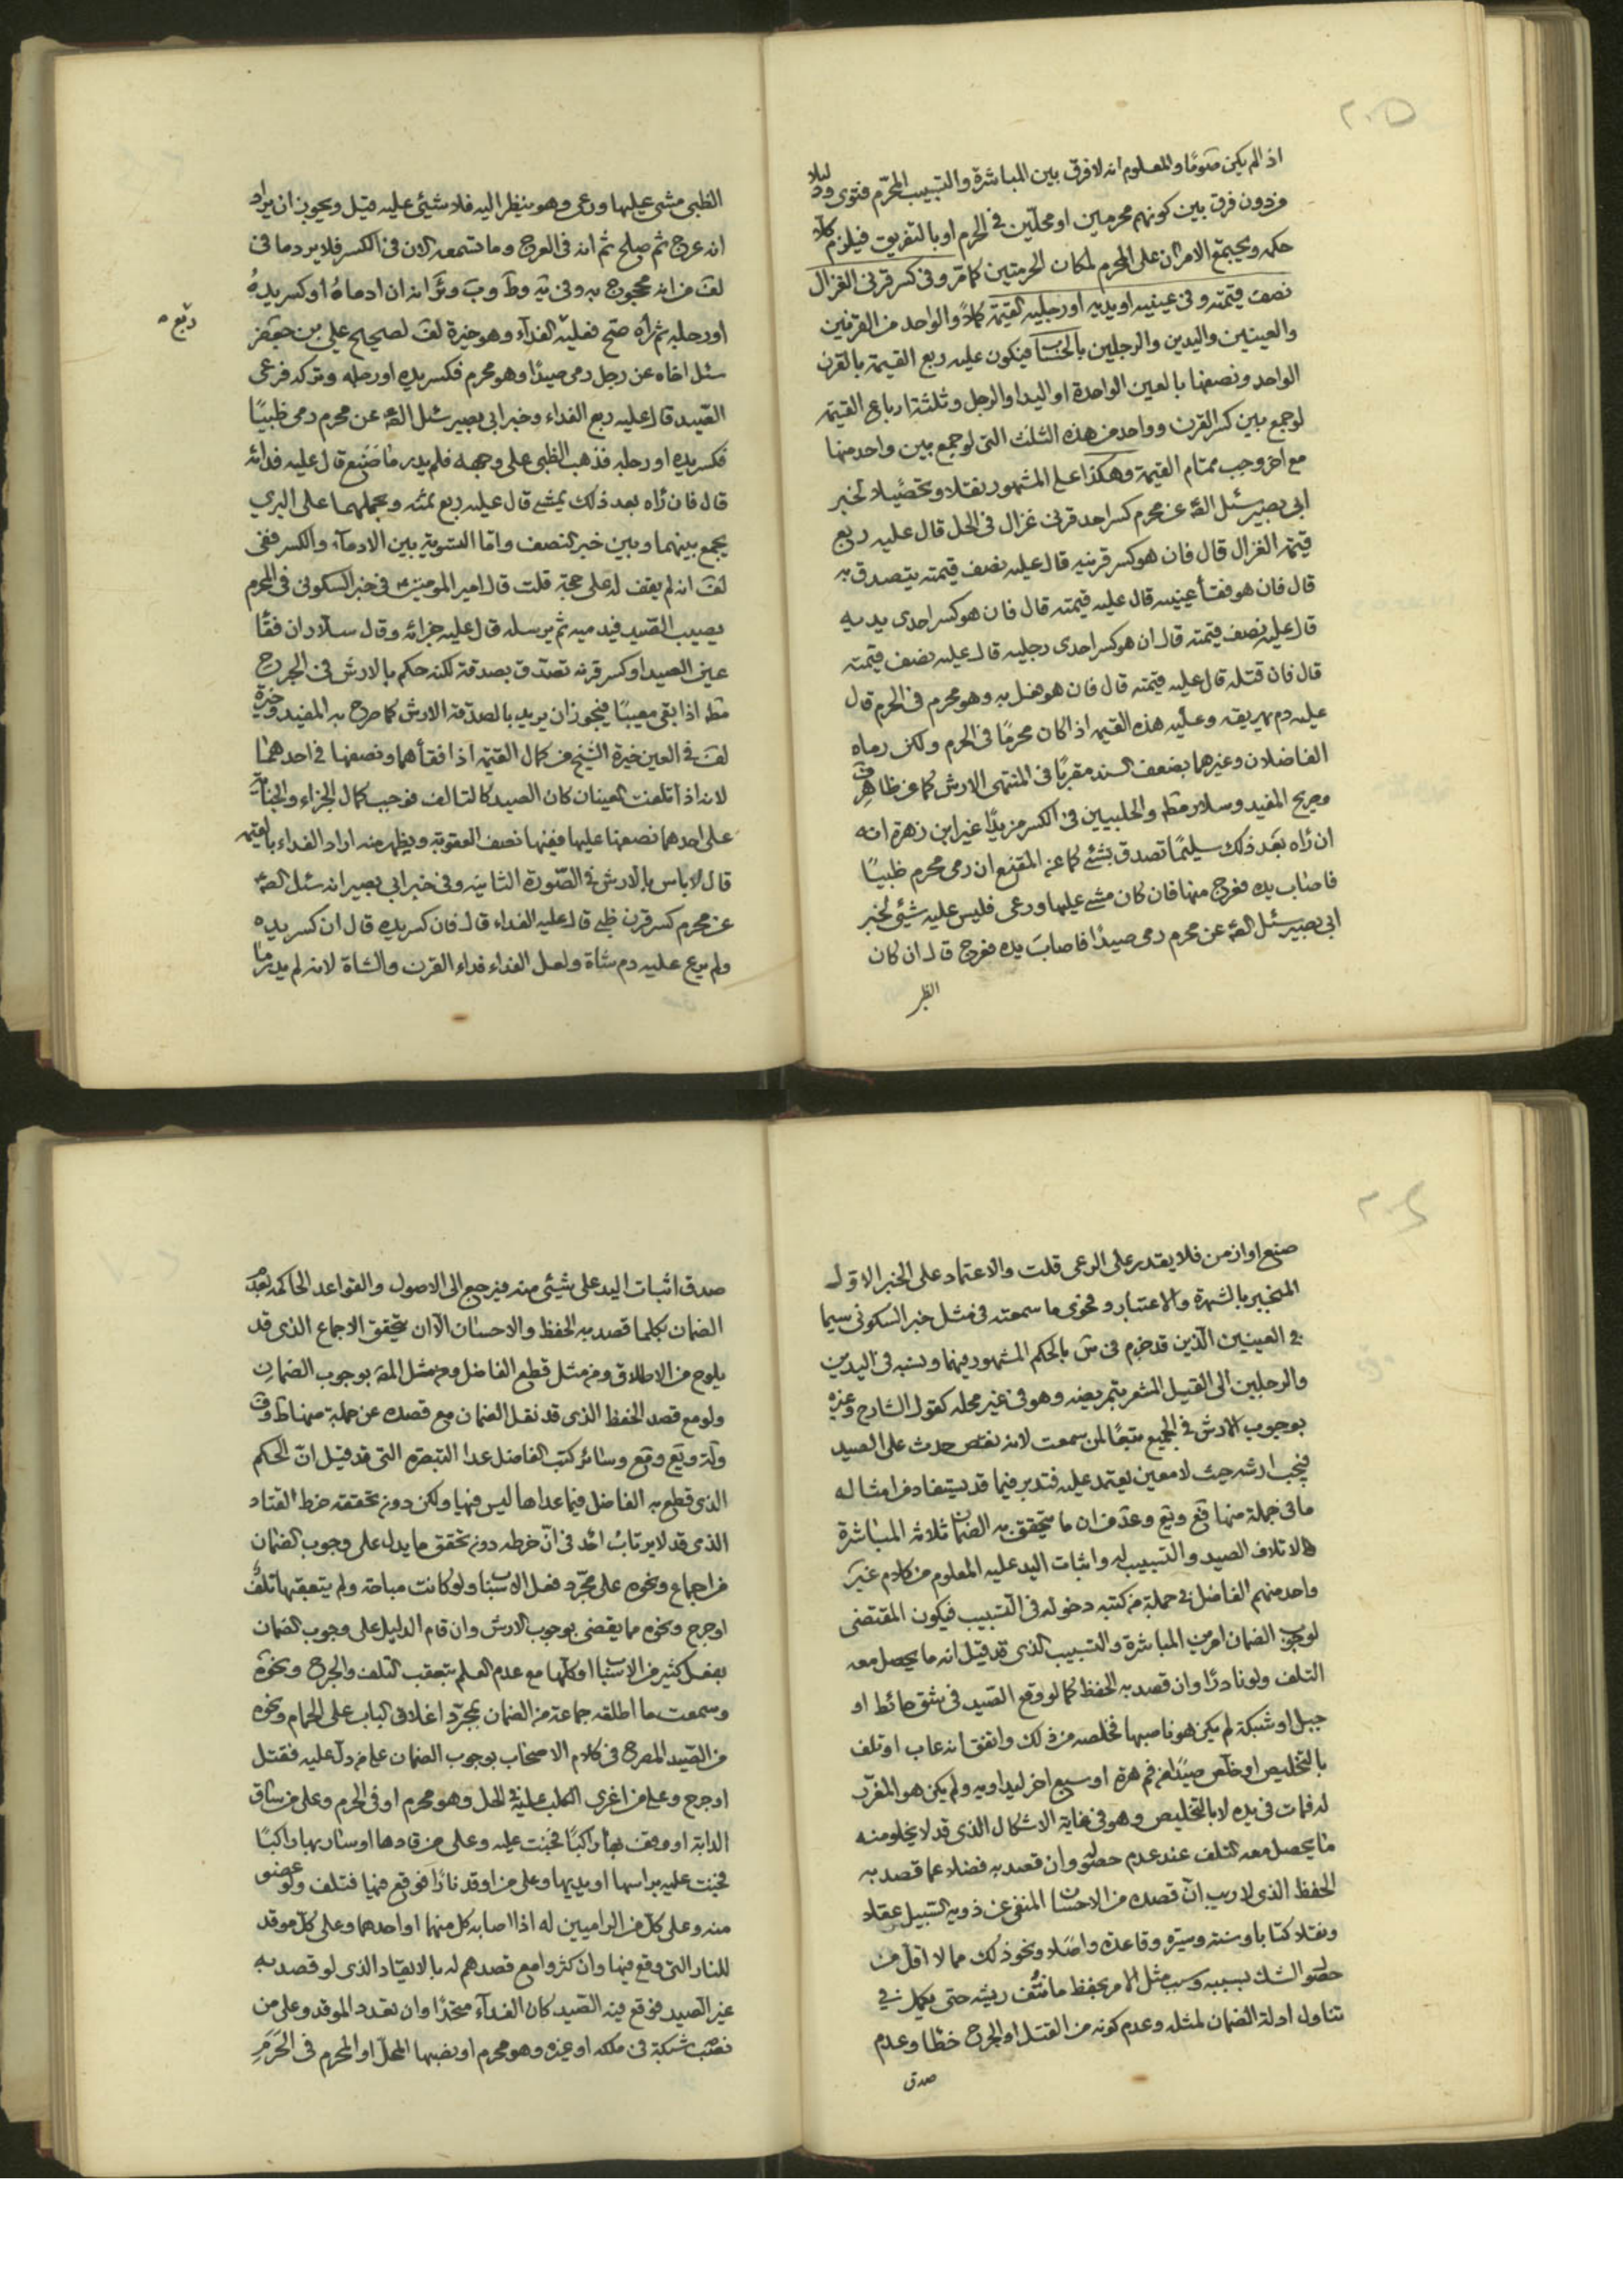 ٢٠٥
اذا لم يكن متوما والمعلوم انه لا فرق بين المباشرة والتسبيب المحرم فتوى ودليلا
من دون فرق بين كونهم محرمين او محلين في الحرم او بالتفريق فيلزم كلا
حكمه ويجتمع الامران على المحرم لمكان الحرمتين كما مر وفى كسر قرنى الغزال
نصف قيمته وفى عينيه او يديه او رجليه القيمة كملا والواحد من القرنين
والعينين واليدين والرجلين بالحساب فيكون عليه ربع القيمة بالقرن
الواحد ونصفها بالعين الواحدة او اليد او الرجل وثلثة ارباع القيمة
لو جمع بين كسر القرن وواحد من هذه الثلث التى لو جمع بين واحد منها
مع اخر وجب تمام القيمة وهكذا على المشهور نقلا وتحصيلا لخبر
ابى بصير سئل الصه عن محرم كسر احد قرنى غزال فى الحل قال عليه ربع
قيمة الغزال قال فان هو كسر قرنيه قال عليه نصف قيمته يتصدق به
قال فان هو فقأ عينيه قال عليه قيمته قال فان هو كسر احدى يديه
قال عليه نصف قيمته قال ان هو كسر احدى رجليه قال عليه نصف قيمته
قال فان قتله قال عليه قيمته قال فان هو فعل به وهو محرم فى الحرم قال
عليه دم يهريقه وعليه هذه القيمة اذا كان محرما فى الحرم ولكن رماه
الفاضلان وغيرهما بضعف السند مقربا فى المنتهى الارش كما عن ظاهر
وصريح المفيد وسلار مطه والحلبيين فى الكسر مزيدا غير ابن زهرة انه
ان رآه بعد ذلك سليما تصدق بشئ كما عن المقنع ان رمى محرم ظبيا
فاصاب يده فعرج منها فان كان مشى عليها ورعى فليس عليه شئ لخبر
ابى بصير سئل الصه عن محرم رمى صيدا فاصاب يده فعرج قال ان كان
الظبى
الظبى مشى عليها ورعى وهو ينظر اليه فلا شئ عليه قيل ويجوز ان يراد
انه عرج ثم صلح ثم انه فى العرج وما تسمعه الان فى الكسر فلا يرد ما فى
لف من انه محجوج به وفى يه وط وب وئر انه ان ادماه او كسر يده
او رجله ثم رآه صح فعليه الفداء وهو خيرة لف لصحيح علي بن جعفر
ربع
سئل اخاه عن رجل رمى صيدا وهو محرم فكسر يده او رجله وتركه فرعى
الصيد قال عليه ربع الفداء وخبر ابى بصير سئل الصه عن محرم رمى ظبيا
فكسر يده او رجله فذهب الظبى على وجهه فلم يدر ما صنع قال عليه فدائه
قال فان رآه بعد ذلك يمشى قال عليه ربع ثمنه وبحملهما على البرى
يجمع بينهما وبين خبر النصف واما التسوية بين الادماء والكسر ففى
لف انه لم يقف له على حجة قلت قال امير المومنين ع فى خبر السكونى فى المحرم
يصيب الصيد فيدميه ثم يرسله قال عليه جزائه وقال سلار ان فقأ
عين الصيد او كسر قرنه تصدق بصدقة لكنه حكم بالارش فى الجرح
مطه اذا بقى معيبا فيجوز ان يريد بالصدقة الارش كما صرح به المفيد وخيرة
لف فى العين خيرة الشيخ من كمال القيمة اذا فقأهما ونصفها فى احدهما
لانه اذا تلفت العينان كان الصيد كالتالف فوجب كمال الجزاء والجناية
على احدهما نصفها عليها ففيها نصف العقوبة ويظهر منه اراد الفداء بالقيمة
قال لا باس بالارش فى الصورة الثانية وفى خبر ابى بصير انه سئل الصه
عن محرم كسر قرن ظبى قال عليه الفداء قال فان كسر يده قال ان كسر يده
ولم يرع عليه دم شاة ولعل الفداء فداء القرن والشاة لانه لم يدر ما
صنع او ازمن فلا يقدر على الرعى قلت والاعتماد على الخبر الاول
المنجبر بالشهرة والاعتبار وفحوى ما سمعته فى مثل خبر السكونى سيما
فى العينين الذين قد جزم فى ش بالحكم المشهور فيهما ونسبه فى اليدين
والرجلين الى القيل المشعر بتمريضه وهو فى غير محله كقول الشارح وغيره
بوجوب الارش فى الجميع تبعا لمن سمعت لانه نقص حدث على الصيد
فيجب ارشه حيث لا معين يعتمد عليه فتدبر فيما قد يستفاد من امثاله
ما فى جملة منها قع ويع وعد من ان ما يتحقق به الضمان ثلاثه المباشرة
لاتلاف الصيد والتسبيب له واثبات اليد عليه المعلوم من كلام غير
واحد منهم الفاضل فى جملة من كتبه دخوله فى التسبيب فيكون المقتضى
لوجوب الضمان امرين المباشرة والتسبيب الذى قد قيل انه ما يحصل معه
التلف ولو نادرا وان قصد به الحفظ كما لو وقع الصيد فى شق حائط او
جبل او شبكة لم يكن هو ناصبها فخلصه من ذلك واتفق انه عاب او تلف
بالتخليص او خلص صيدا من فم هرة او سبع اخر ليداويه ولم يكن هو المغرى
له فمات فى يده لا بالتخليص وهو فى غاية الاشكال الذى قد لا يخلو منه
ما يحصل معه التلف عند عدم حصوله وان قصد به فضلا عما قصد به
الحفظ الذى لا ريب ان قصده من الاحسان المنفى عن ذويه السبيل عقلا
ونقلا كتابا وسنة وسيرة وقاعدة واصلا ونحو ذلك مما لا اقل من
حصول الشك بسببه وسبب مثل الامر بحفظ ما نتف ريشه حتى يكمل فى
تناول ادلة الضمان لمثله وعدم كونه من القتل او الجرح خطأ وعدم
صدق
صدق اثبات اليد على شيئى منه فيرجع الى الاصول والقواعد الحاكمة بعدم
الضمان بكلما قصد به الحفظ والاحسان الا ان يتحقق الاجماع الذى قد
يلوح من الاطلاق ومن مثل قطع الفاضل ومن مثل المص بوجوب الضمان
ولو مع قصد الحفظ الذى قد نقل الضمان مع قصده عن جملة منها ط وف
وكة ويع وقع وسائر كتب الفاضل عدا التبصرة التى قد قيل ان الحكم
الذى قطع به الفاضل فيما عداها ليس فيها ولكن دون تحققه خرط القتاد
الذى قد لا يرتاب احد فى ان خرطه دون تحقق ما يدل على وجوب الضمان
من اجماع ونحوه على مجرد فعل الاسباب ولو كانت مباحة ولم يتعقبها تلف
او جرح ونحوه مما يقضى بوجوب الارش وان قام الدليل على وجوب الضمان
بفعل كثير من الاسباب او كلها مع عدم العلم بتعقب التلف والجرح ونحوه
وسمعت ما اطلقه جماعة من الضمان بمجرد اغلاق الباب على الحمام ونحوه
من الصيد المصرح فى كلام الاصحاب بوجوب الضمان على من دل عليه فقتل
او جرح وعلى من اغرى الكلب عليه فى الحل وهو محرم او فى الحرم وعلى من ساق
الدابة او وقف بها راكبا فجنت عليه وعلى من قادها او سار بها راكبا
فجنت عليه براسها او يديها وعلى من اوقد نارا فوقع فيها فتلف ولو عضو
منه وعلى كل من الراميين له اذا اصابه كل منهما او احدهما وعلى كل موقد
للنار التى وقع فيها وان كثروا مع قصدهم له بالايقاد الذى لو قصد به
غير الصيد فوقع فيه الصيد كان الفداء متحدا وان تعدد الموقد وعلى من
نصب شبكة فى ملكه او غيره وهو محرم او نصبها المحل او المحرم فى الحرم